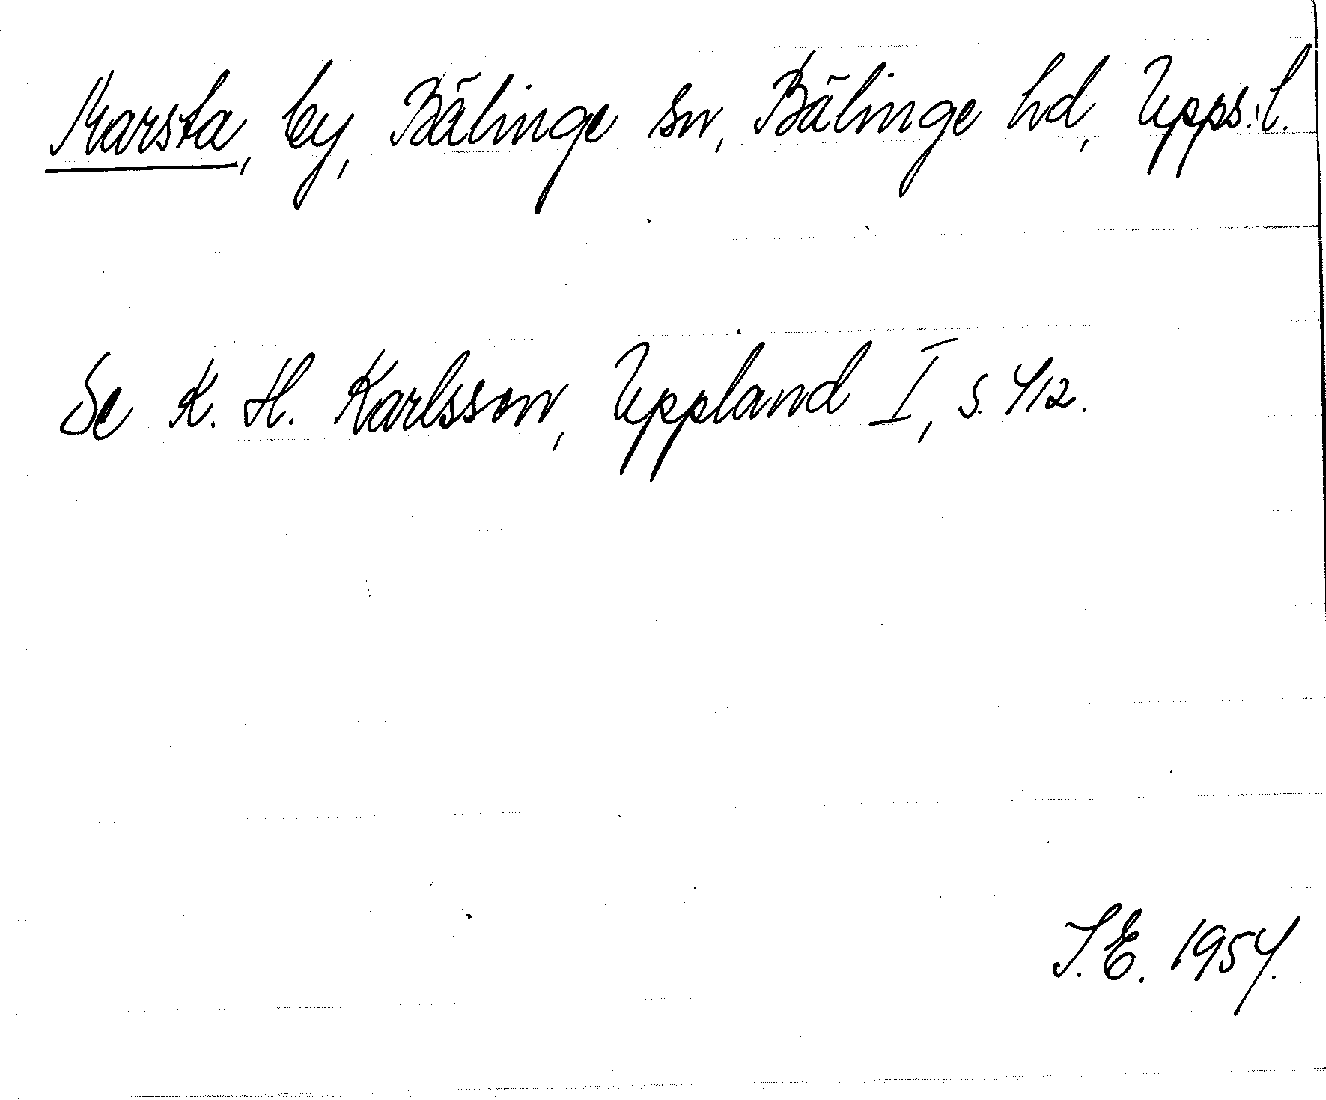 Marsta, by, Bälinge sn, Bälinge hd, Upps. l.
Se K. H. Karlsson, Uppland I, s. 412.
I.E. 1954.